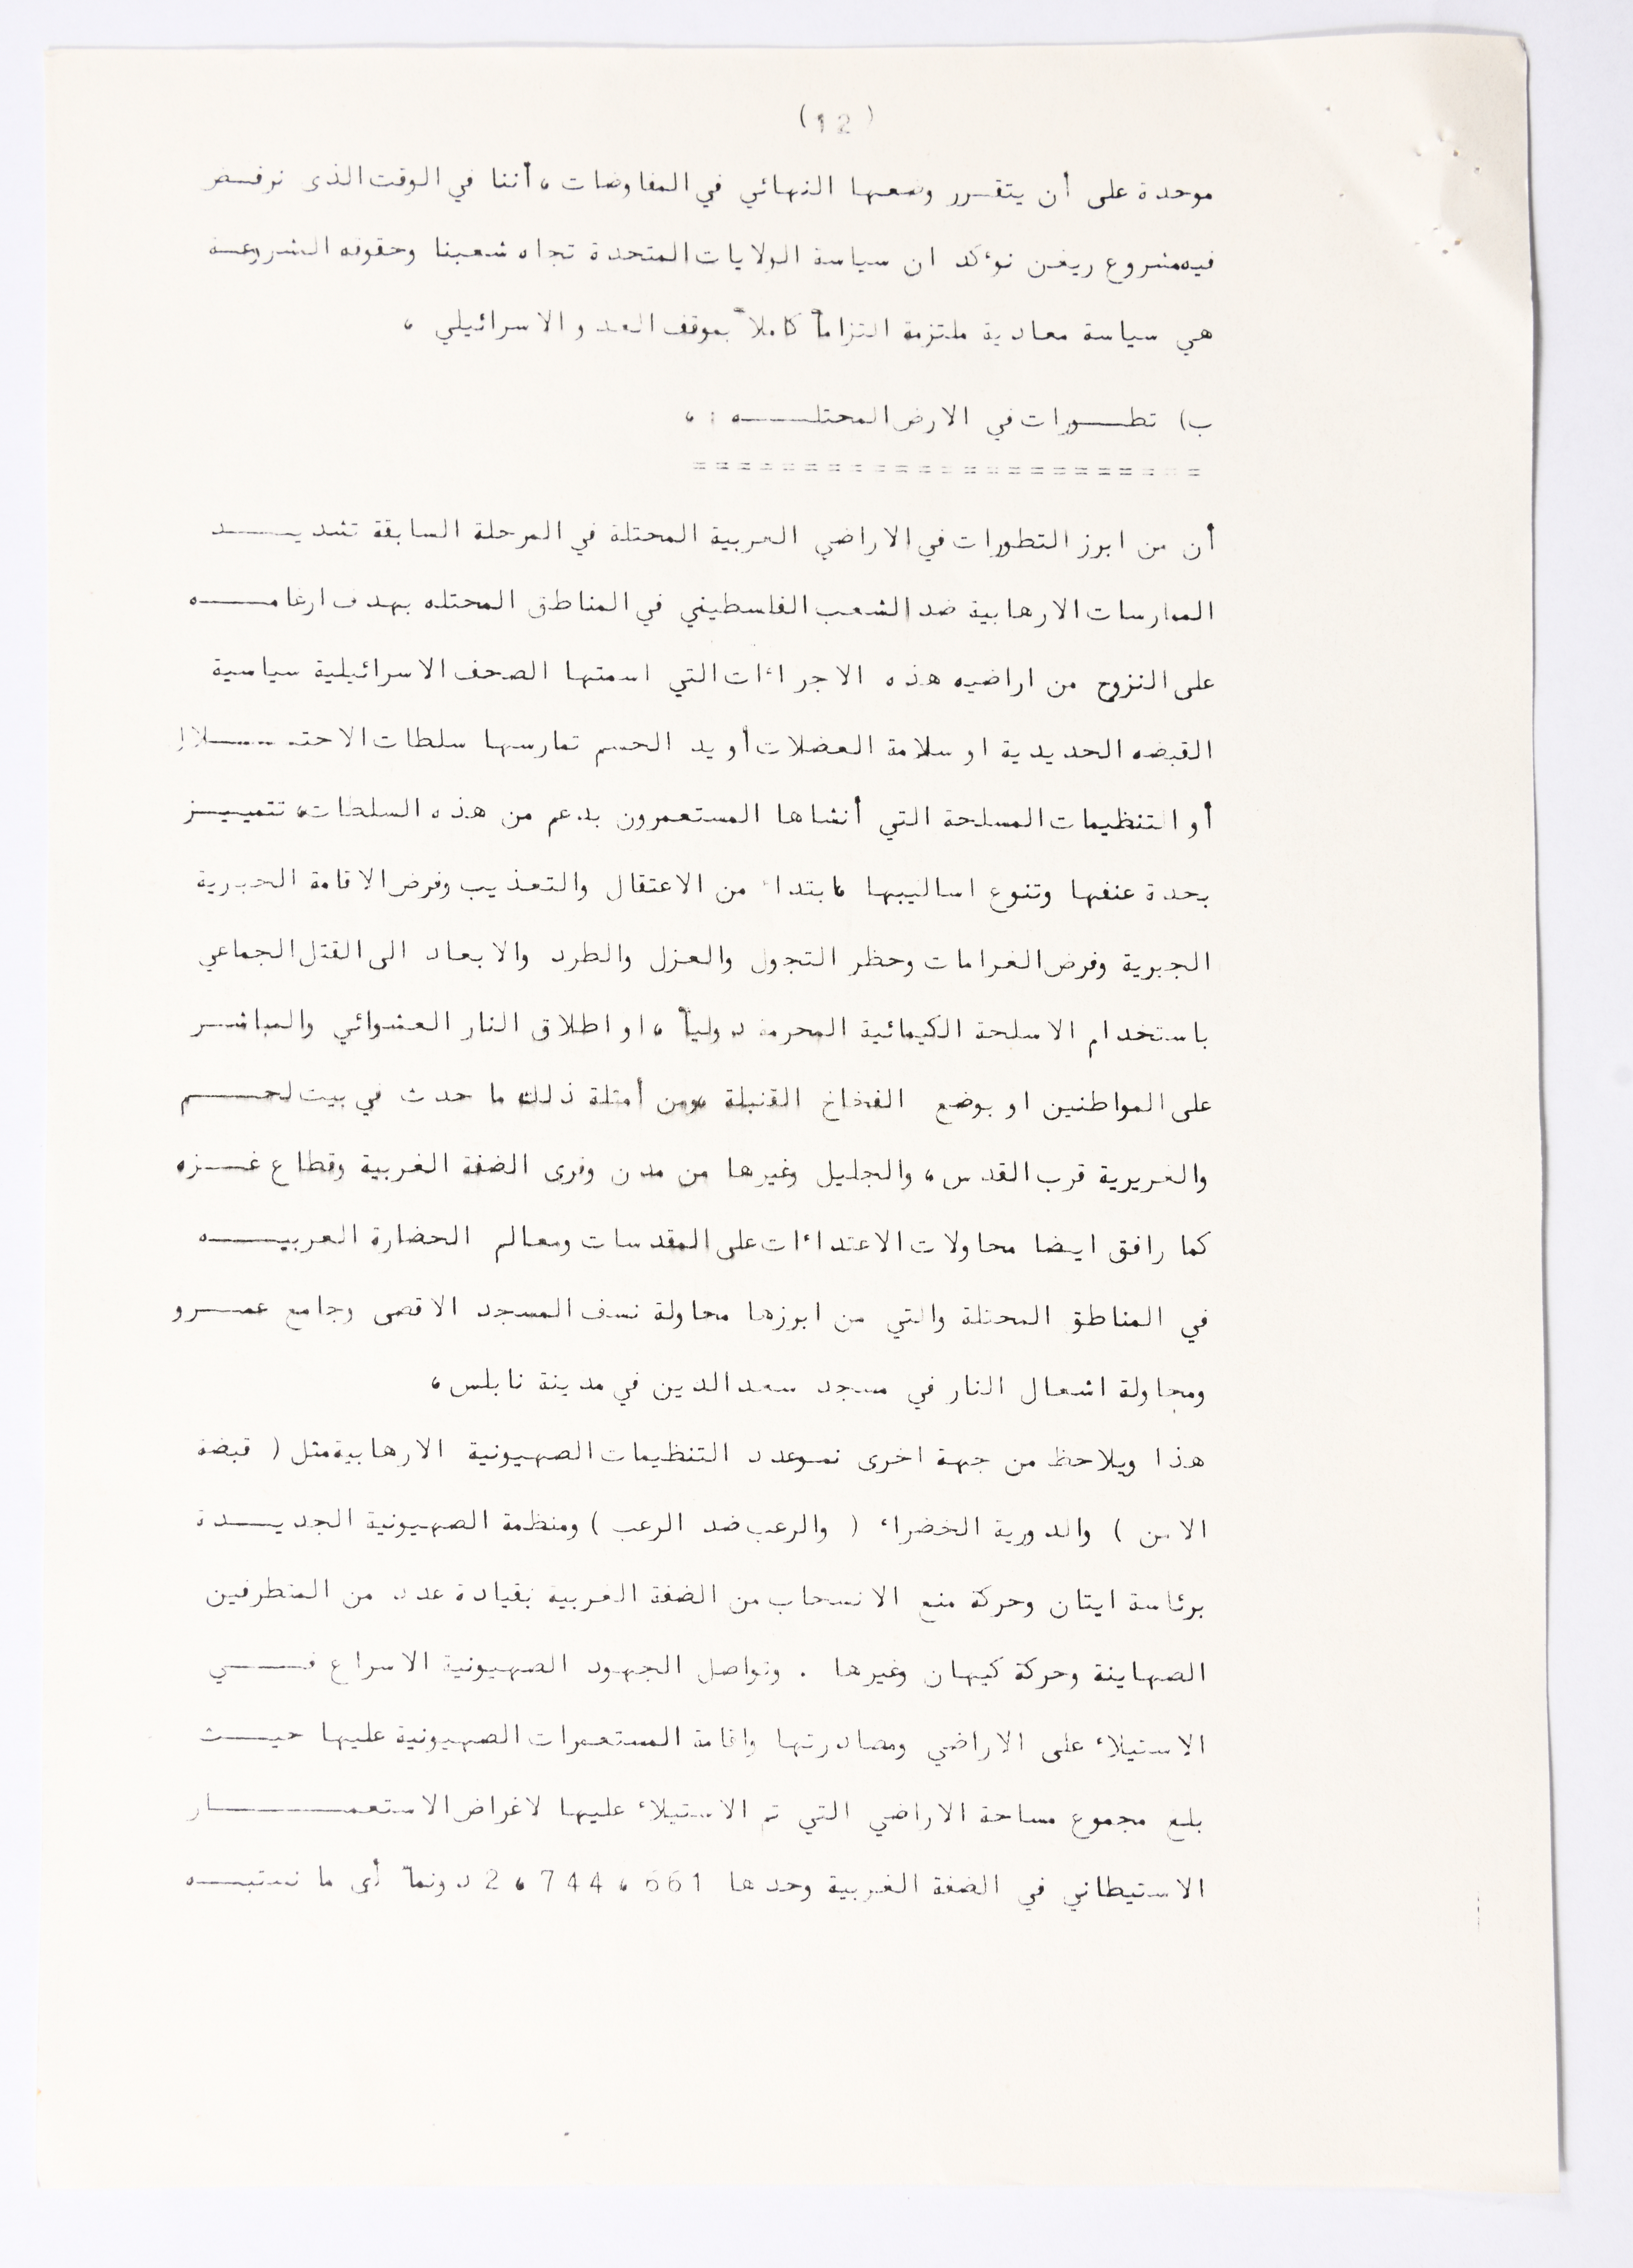 (12)
موحدة على أن يتقـرر وضعها النهائي في المفاوضات ، أننا في الوقت الذى نرفـض
فيه مشروع ريغن نؤكد ان سياسة الولايات المتحدة تجاه شعبنا وحقوقه المشروعـة
هي سياسة معادية ملتزمة التزاماً كاملاً بموقف العدو الاسرائيلي ،
ب) تطـورات في الارض المحتلـــه : ،
= = = = = = = = = = = = = = = = = = = = = = =
أن من ابرز التطورات في الاراضي العربية المحتلة في المرحلة السابقة تشديـــد
الممارسات الارهابية ضد الشعب الفلسطيني في المناطق المحتله بهدف ارغامـــه
على النزوح من اراضيه هذه الاجراءات التي اسمتها الصحف الاسرائيلية سياسية
القبضه الحديدية او سلامة العضلات أويد الحسم تمارسها سلطات الاحتـــلال
أو التنظيمات المسلحة التي أنشاها المستعمرون بدعم من هذه السلطات، تتميــز
بحدة عنفها وتنوع اساليبها ، ابتداء من الاعتقال والتعذيب وفرض الاقامة الجبرية
الجبرية وفرض الغرامات وحظر التجول والعزل والطرد والابعاد الى القتل الجماعي
باستخدام الاسلحة الكيمائية المحرمة دولياً ، او اطلاق النار العشوائي والمباشـر
على المواطنين او بوضع الفخاخ القنبلة ،ومن أمثلة ذلك ما حدث في بيت لحـــم
والعزيرية قرب القدس ، والجليل وغيرها من مدن وقرى الضفة الغربية وقطاع غــزه
كما رافق ايضا محاولات الاعتداءات على المقدسات ومعالم الحضارة العربيـــه
في المناطق المحتلة والتي من ابرزها محاولة نسف المسجد الاقصى وجامع عمــرو
ومحاولة اشعال النار في مسجد سعد الدين في مدينة نابلس ،
هذا ويلاحظ من جهة اخرى نمو عدد التنظيمات الصهيونية الارهابية مثل ( قبضة
الامن ) والدورية الخضراء ( والرعب ضد الرعب ) ومنظمة الصهيونية الجديــدة
برئاسة ايتان وحركة منع الانسحاب من الضفة الغربية بقيادة عدد من المتطرفين
الصهاينة وحركة كيهان وغيرها . وتواصل الجهود الصهيونية الاسراع فـــي
الاستيلاء على الاراضي ومصادرتها واقامة المستعمرات الصهيونية عليها حيــث
بلغ مجموع مساحة الاراضي التي تم الاستيلاء عليها لاغراض الاستعمـــــار
الاستيطاني في الضفة الغربية وحدها 2،744،661 دونماً أى ما نسبتــه